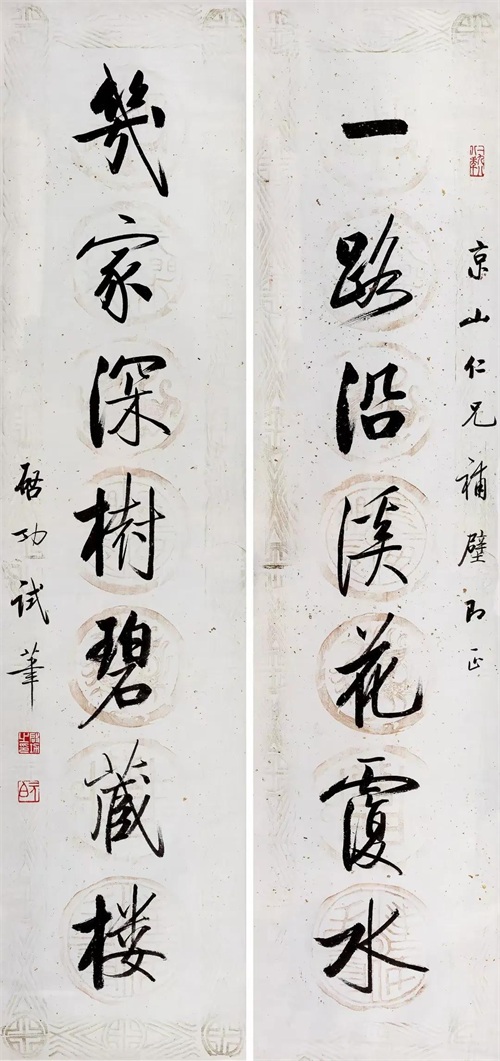 京山仁兄補壁即正
一路沿溪花覆水
幾家深樹碧藏楼
啓功試筆